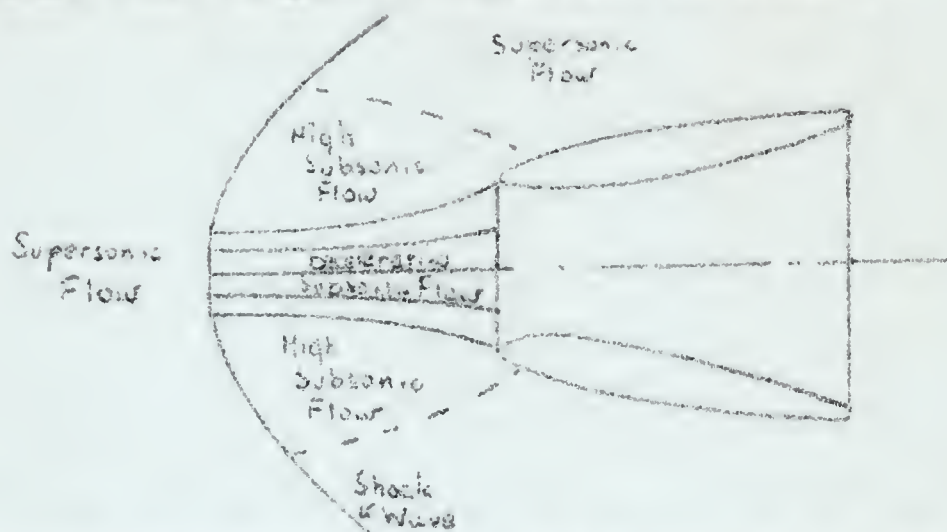 Supersonic
Flow
High
Subsonic
Flow
Supersonic
Flow
Decelerating
Subsonic Flow
High
Subsonic
Flow
Shock
Wave